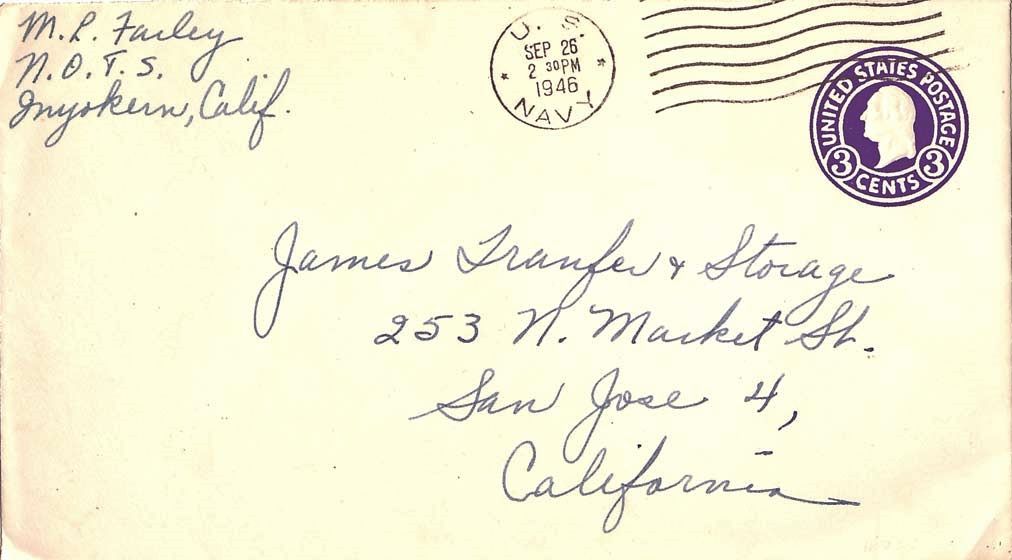 M. L. Farley
N. O. T. S.
Inyokern, Calif.
U. S.
SEP 26
2 30 PM
1946
NAVY
UNITED STATES POSTAGE
3 CENTS 3
James Tranfer & Storage
253 N. Market St.
San Jose 4,
California